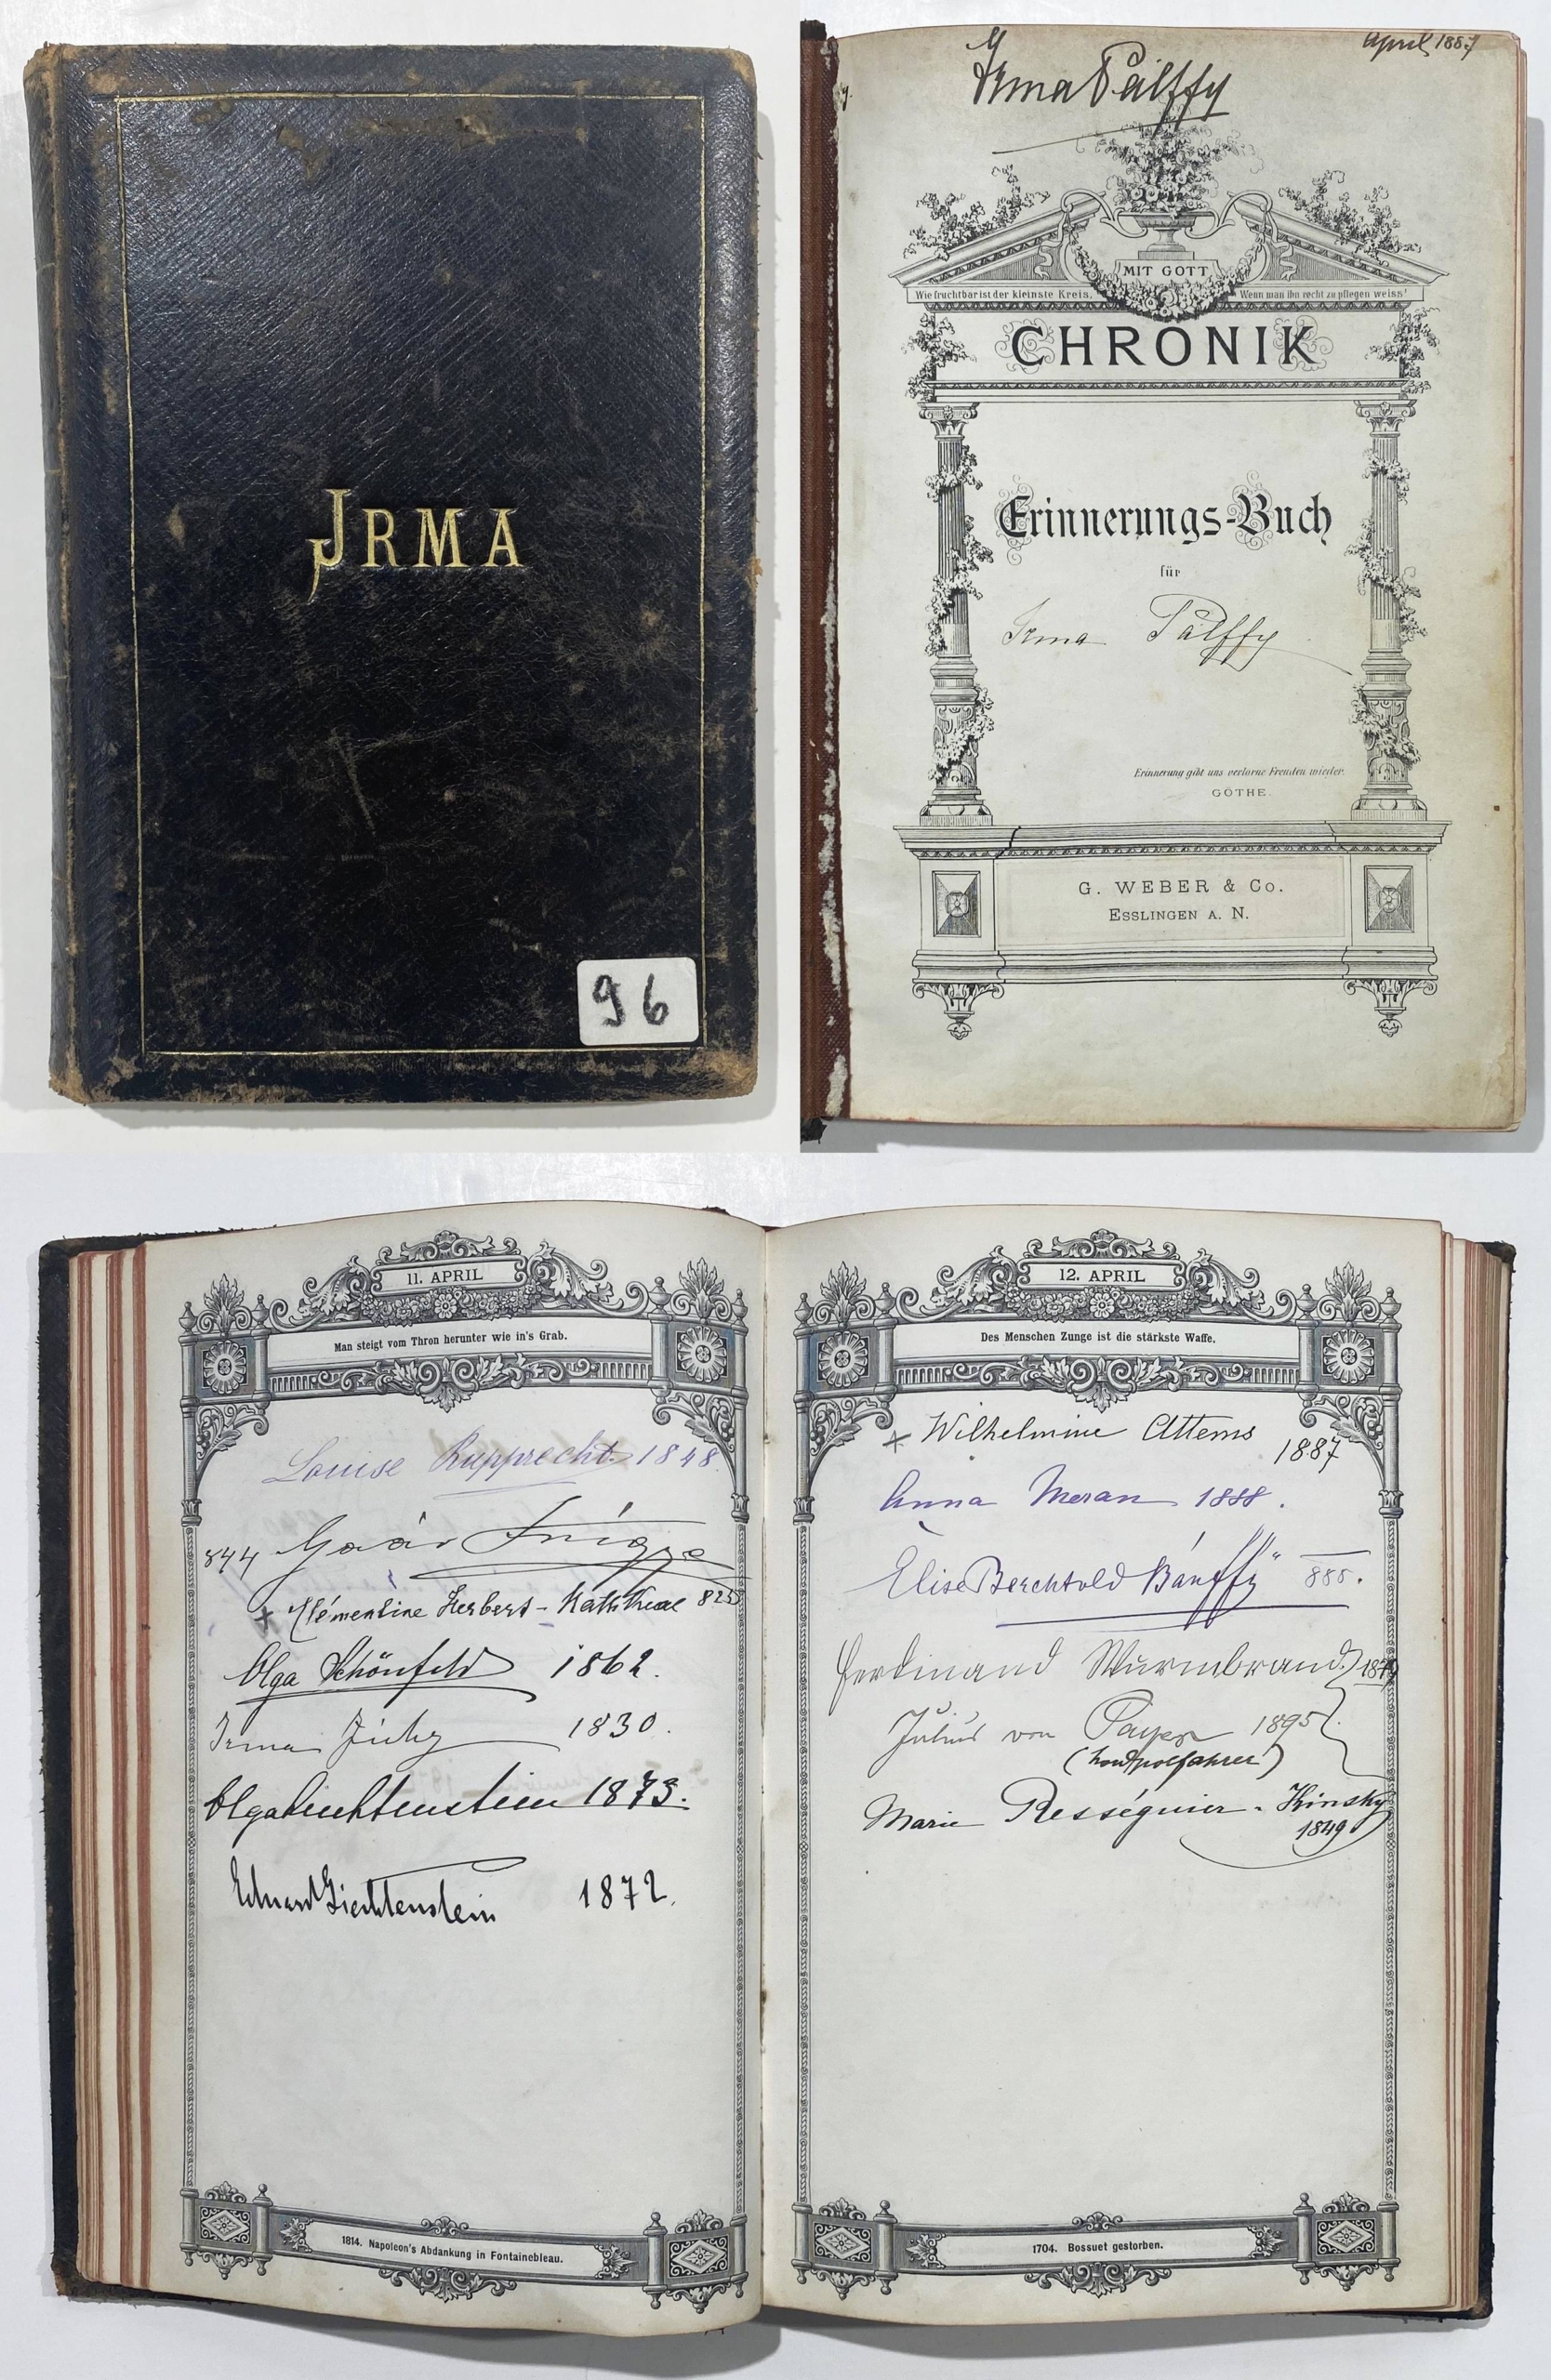 JRMA
96
Irma Pálffy
April 1887
MIT GOTT
Wie fruchtbar ist der kleinste Kreis, Wenn man ihn recht zu pflegen weiss!
CHRONIK
Erinnerungs-Buch
für
Irma Pálffy
Erinnerung gibt uns verlorne Freuden wieder.
GÖTHE.
G. WEBER & Co.
ESSLINGEN A. N.
11. APRIL
Man steigt vom Thron herunter wie in's Grab.
Louise Rupprecht. 1848.
844 Gaár
Clémentine Herbert - 825
Olga Schönfeld 1862.
Irma Zichy 1830.
Olga Liechtenstein 1873.
Eduard Liechtenstein 1872.
1814. Napoleon's Abdankung in Fontainebleau.
12. APRIL
Des Menschen Zunge ist die stärkste Waffe.
Wilhelmine Attems
1887
Anna Meran 1888.
Elise Berchtold Bánffy 885.
Ferdinand Wurmbrand
Julius von Payer 1895
(Nordpolfahrer)
Marie Rességuier - Kinsky
1849
1704. Bossuet gestorben.